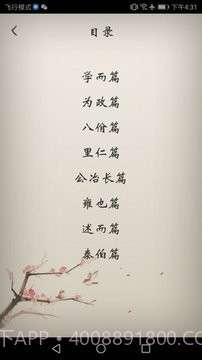 飞行模式 下午4:31
目录
学而篇
为政篇
八佾篇
里仁篇
公冶长篇
雍也篇
述而篇
泰伯篇
下APP · 4008891800.CO